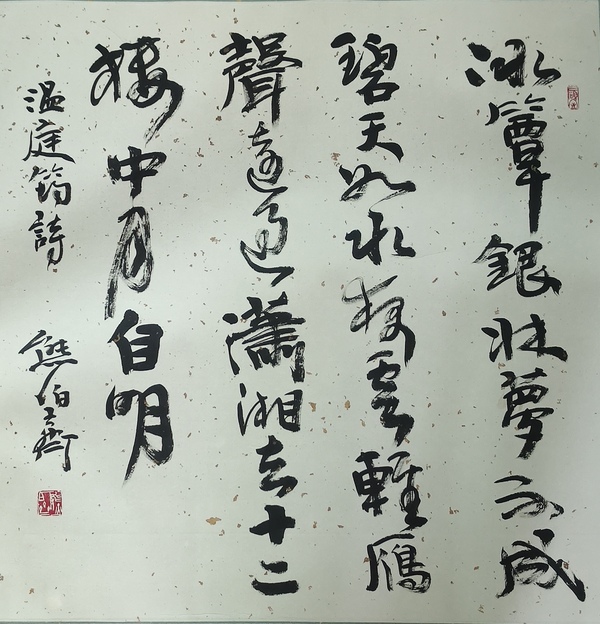 冰簟銀牀夢不成
碧天如水夜雲輕鴈
聲遠過瀟湘去十二
樓中月自明
温庭筠詩
熊伯齊